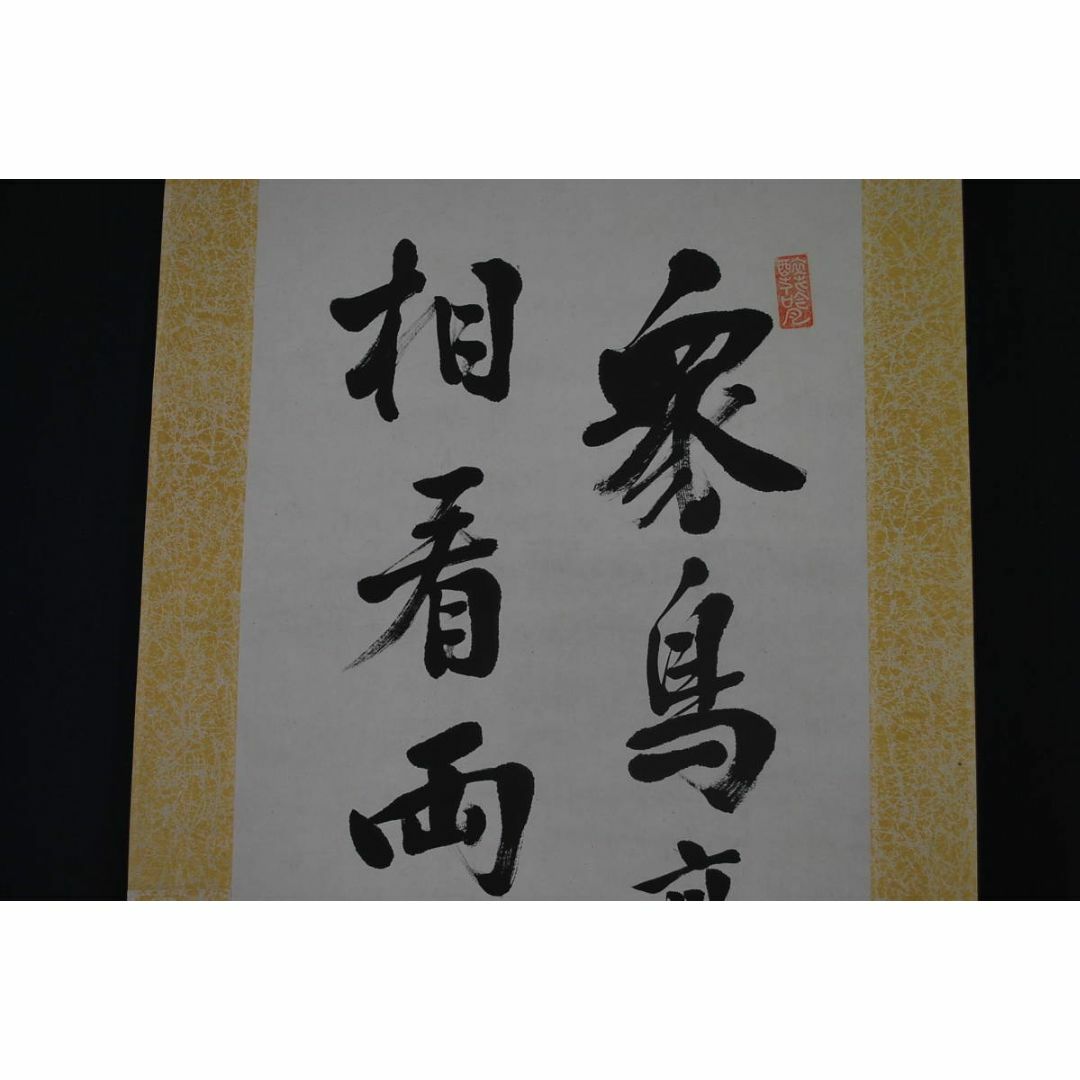 衆鳥高
相看両